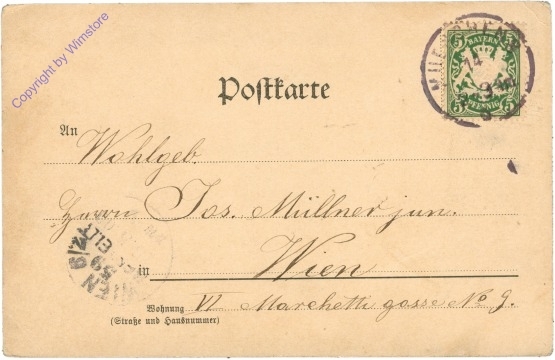 Copyright by Wimstore
BAYERN
5 5
PFENNIG
Postkarte
An
Wohlgeb.
Herrn Jos. Müllner jun.
in Wien
Wohnung VI. Marchettigasse No 9.
(Straße und Hausnummer)